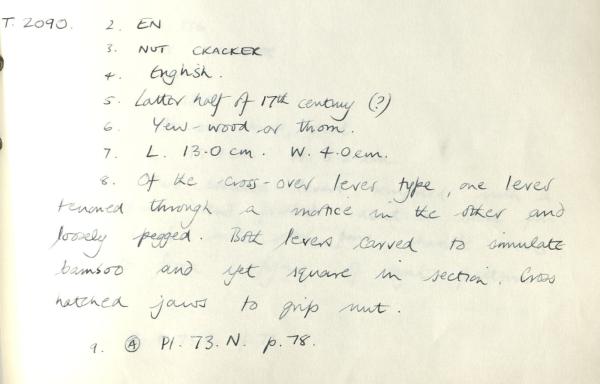 T. 2090. 2. EN
3. NUT CRACKER
4. English.
5. Latter half of 17th century (?)
6. Yew-wood or thorn.
7. L. 13.0 cm. W. 4.0 cm.
8. Of the cross-over lever type, one lever
tenoned through a mortice in the other and
loosely pegged. Both levers carved to simulate
bamboo and yet square in section. Cross
hatched jaws to grip nut.
9. ④ Pl. 73. N. p. 78.